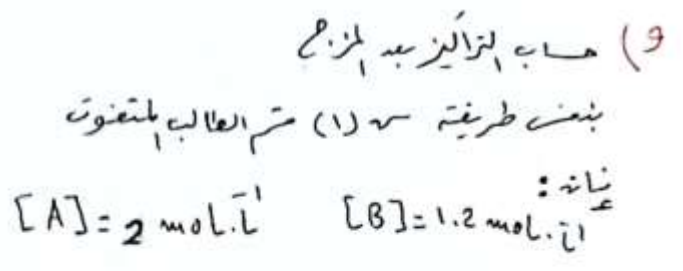 و) حساب التراكيز بعد المزج
بنفس طريقة س (1) الطالب المتفوق
فإنه :
[A]= 2 mol.L⁻¹ [B]=1.2 mol.L⁻¹